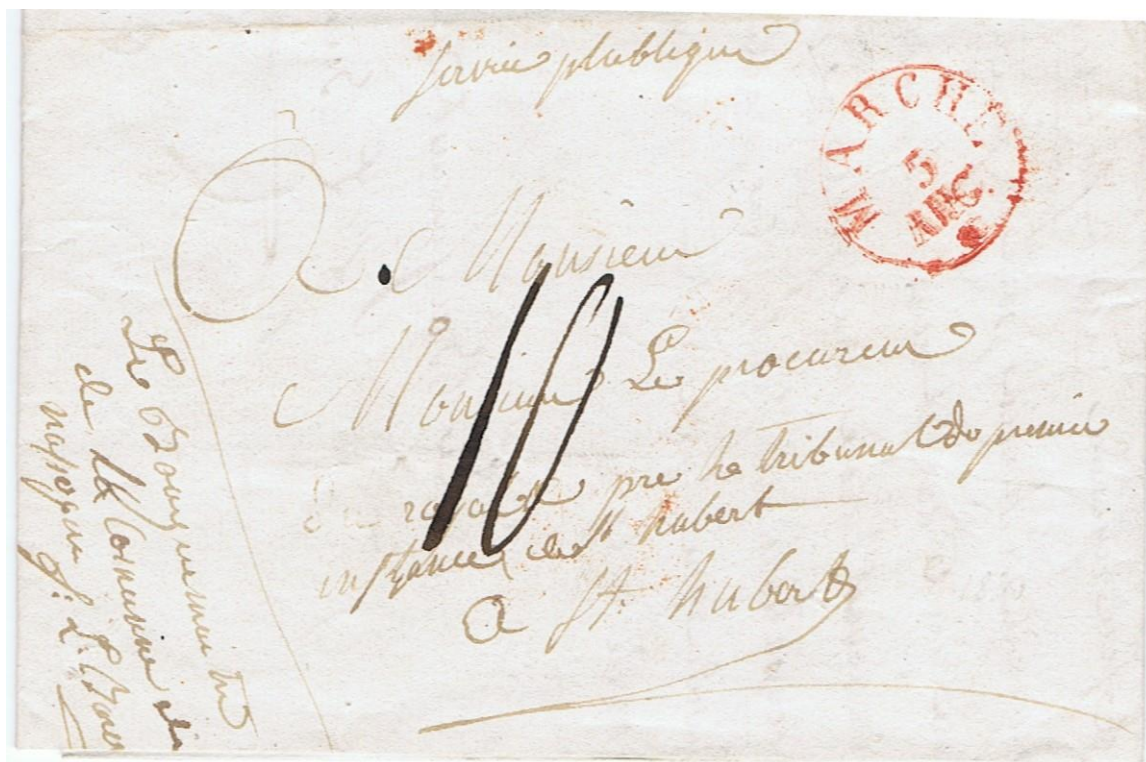 Service publique
MARCHE
5
AUG.
A Monsieur
Monsieur Le procureur
Du royaume pre le tribunal de premier
instance de St hubert
a St. hubert
10
Le Bourguemaitre
de la Commune de
nassogne J: L: